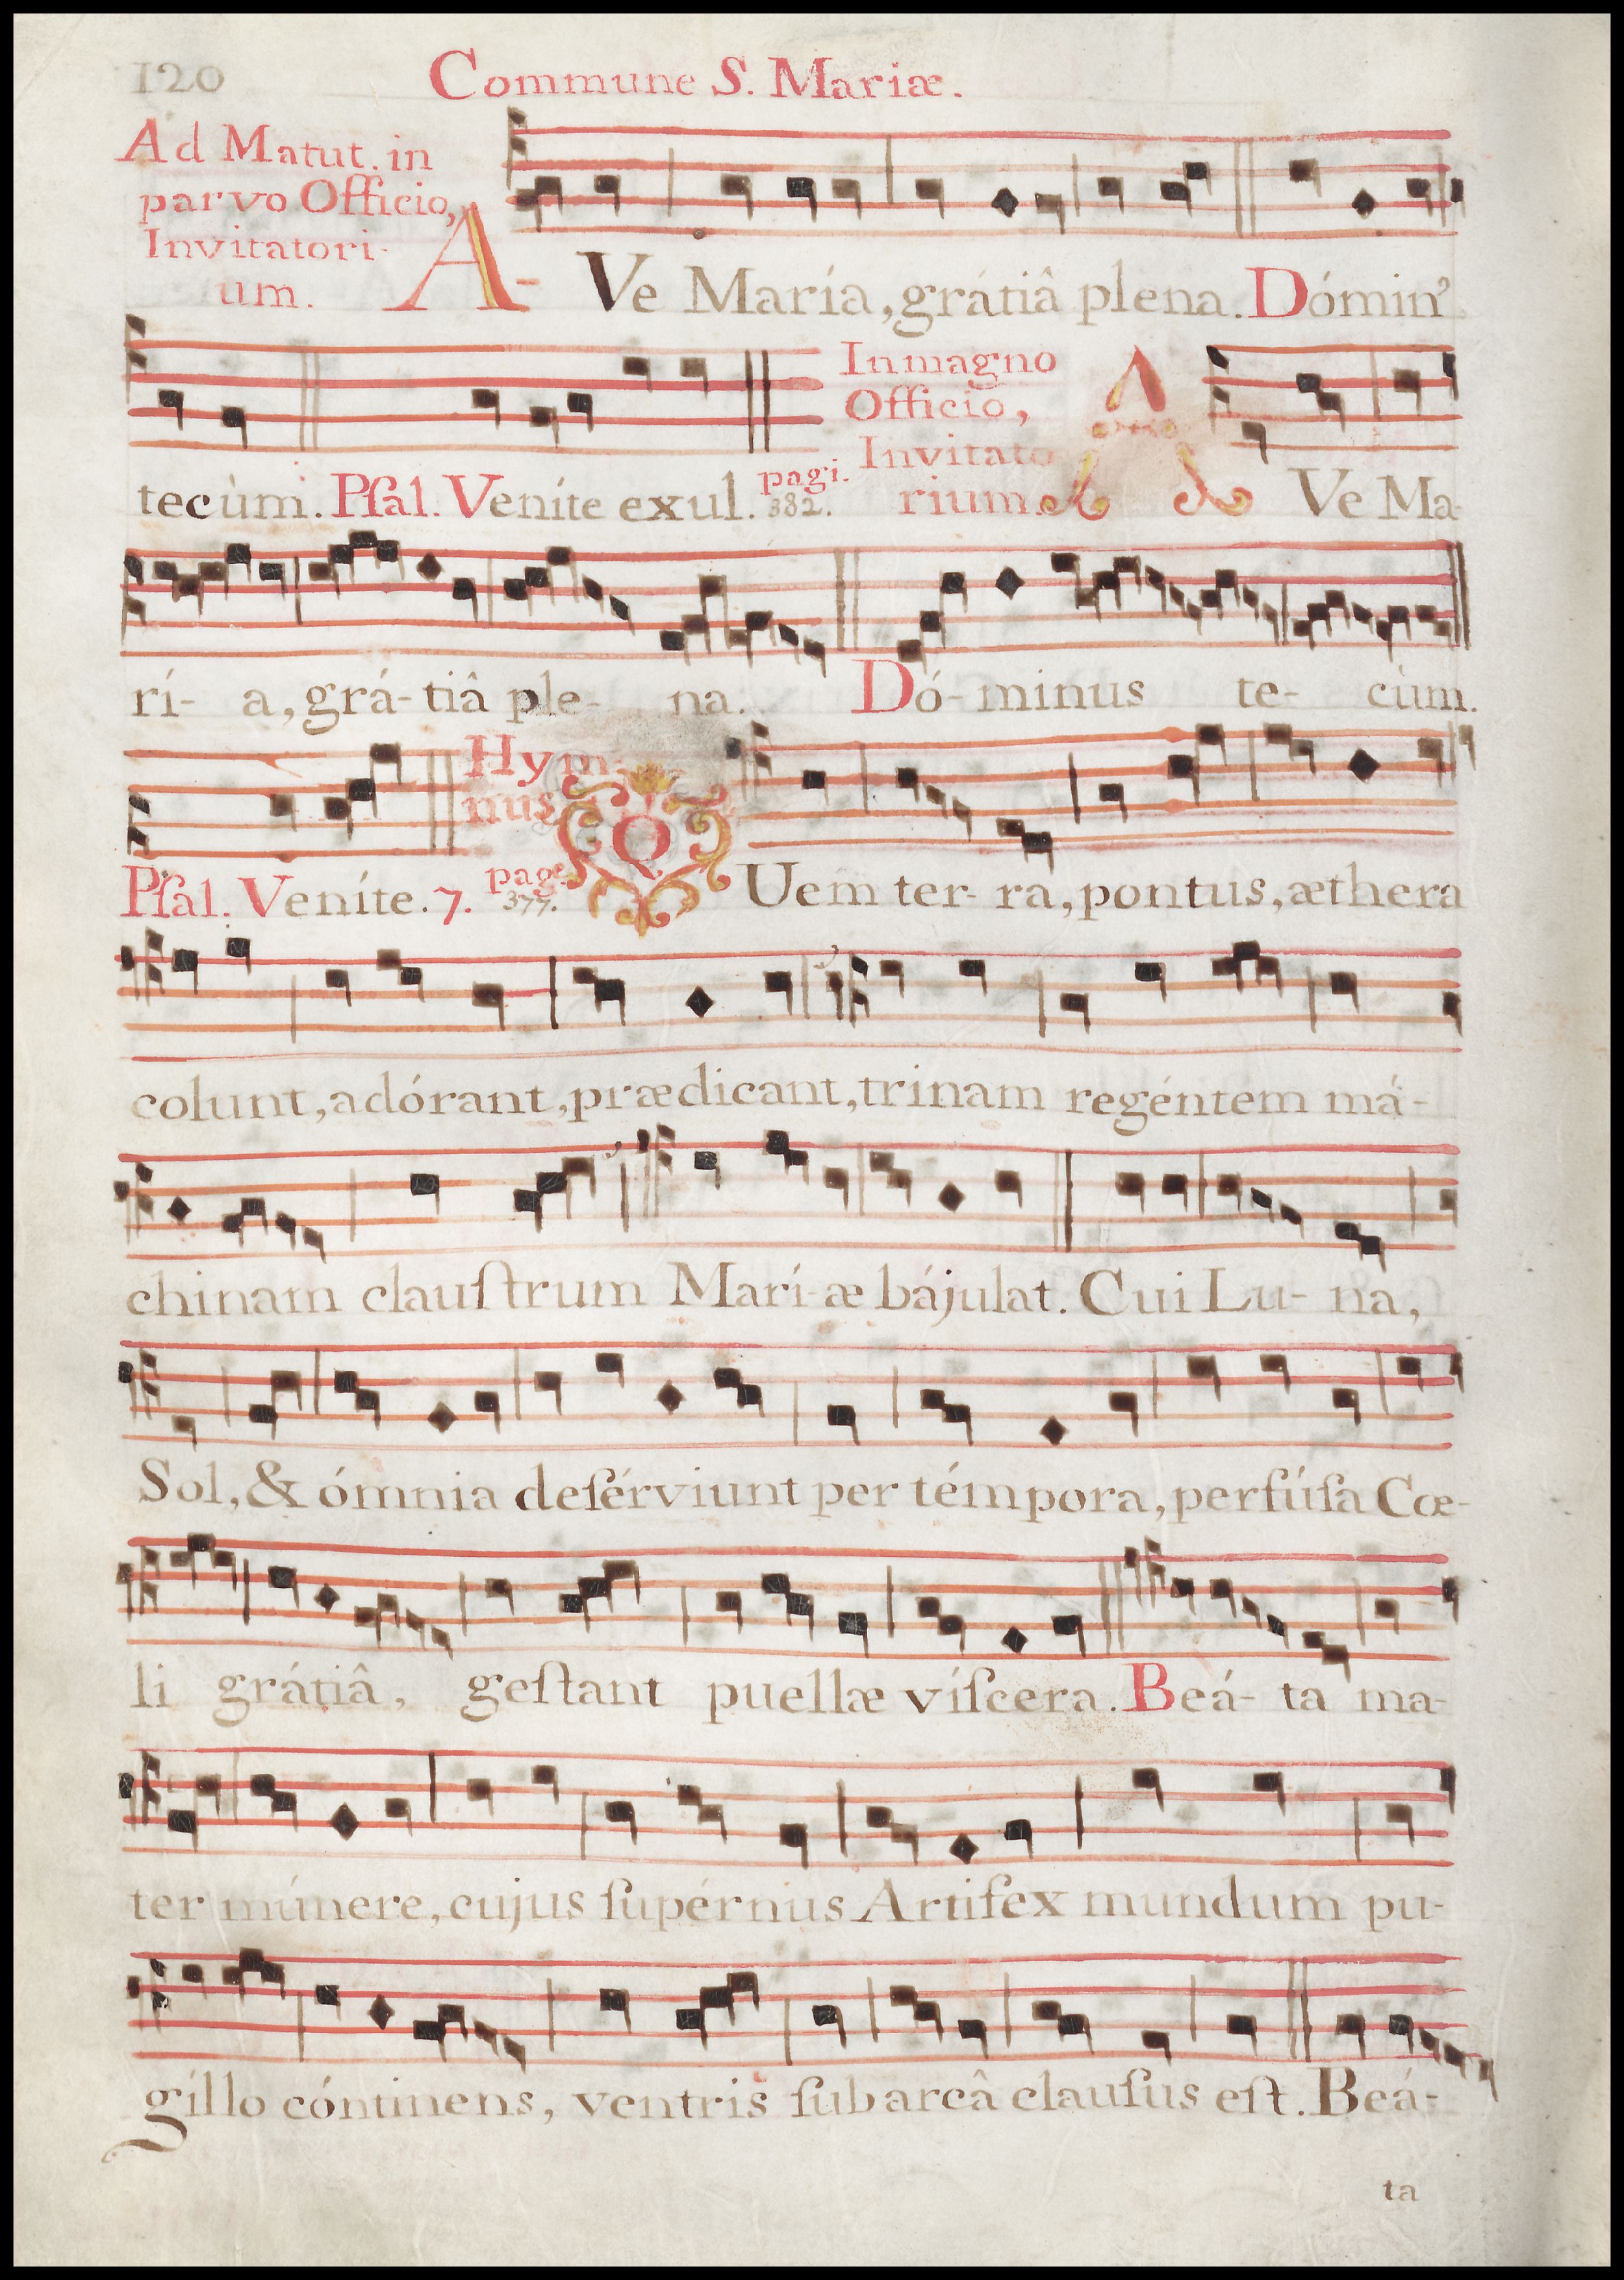 120 Commune S. Mariæ.
Ad Matut. in
parvo Officio,
Invitatori-
um.
A- Ve María, grátiâ plena. Dómin’
tecùm. Pſal. Veníte exul. pagi. 382.
In magno
Officio,
Invitato
rium.
A Ve Ma-
rí- a, grá-tiâ ple- na. Dó-minus te- cùm.
Pſal. Veníte. 7. page. 377.
Hym-
nus
Q Uem ter- ra, pontus, æthera
colunt, adórant, prædicant, trinam regéntem má-
chinam clauſtrum Marí-æ bájulat. Cui Lu- na,
Sol, & ómnia deſérviunt per témpora, perfúſa Cœ-
li grátiâ, geſtant puellæ víſcera. Beá- ta ma-
ter múnere, cujus ſupérnus Artifex mundum pu-
gíllo cóntinens, ventris ſub arcâ clauſus eſt. Beá-
ta